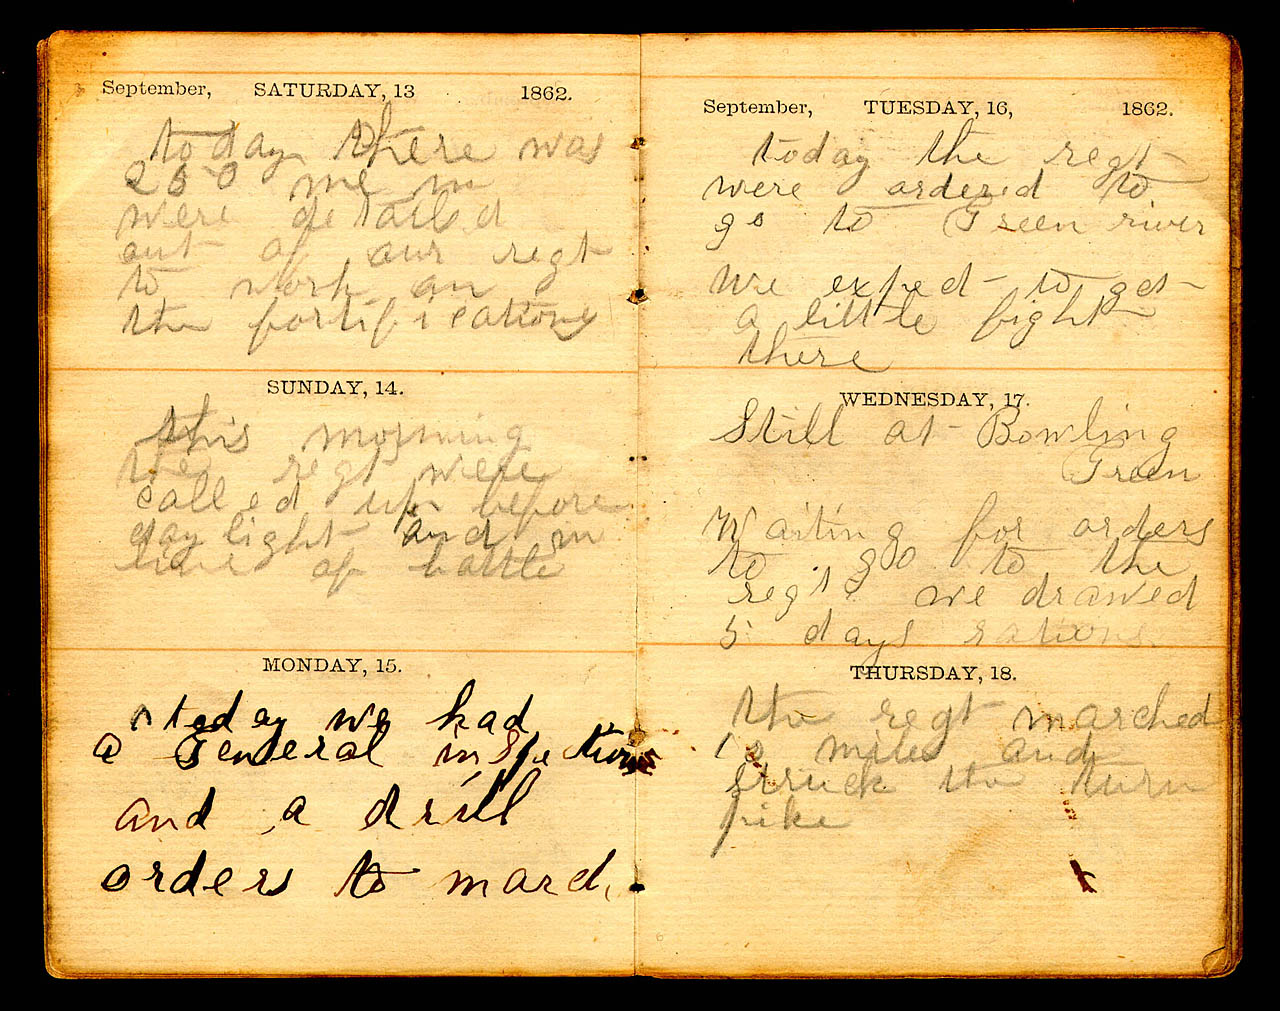 September, SATURDAY, 13 1862.
today there was
250 me in
were detailed
out of our regt
to work on
the fortifications
SUNDAY, 14.
this morning
the regt were
called up before
day light and in
line of battle
MONDAY, 15.
today we had
a General inspection
and a drill
orders to march
September, TUESDAY, 16, 1862.
today the regt
were ordered to
go to Green river
We expect to get
a little fight
there
WEDNESDAY, 17.
Still at Bowling
Green
Waiting for orders
to go to the
regt we drawed
5 days rations
THURSDAY, 18.
the regt marched
miles and
struck the turn
pike